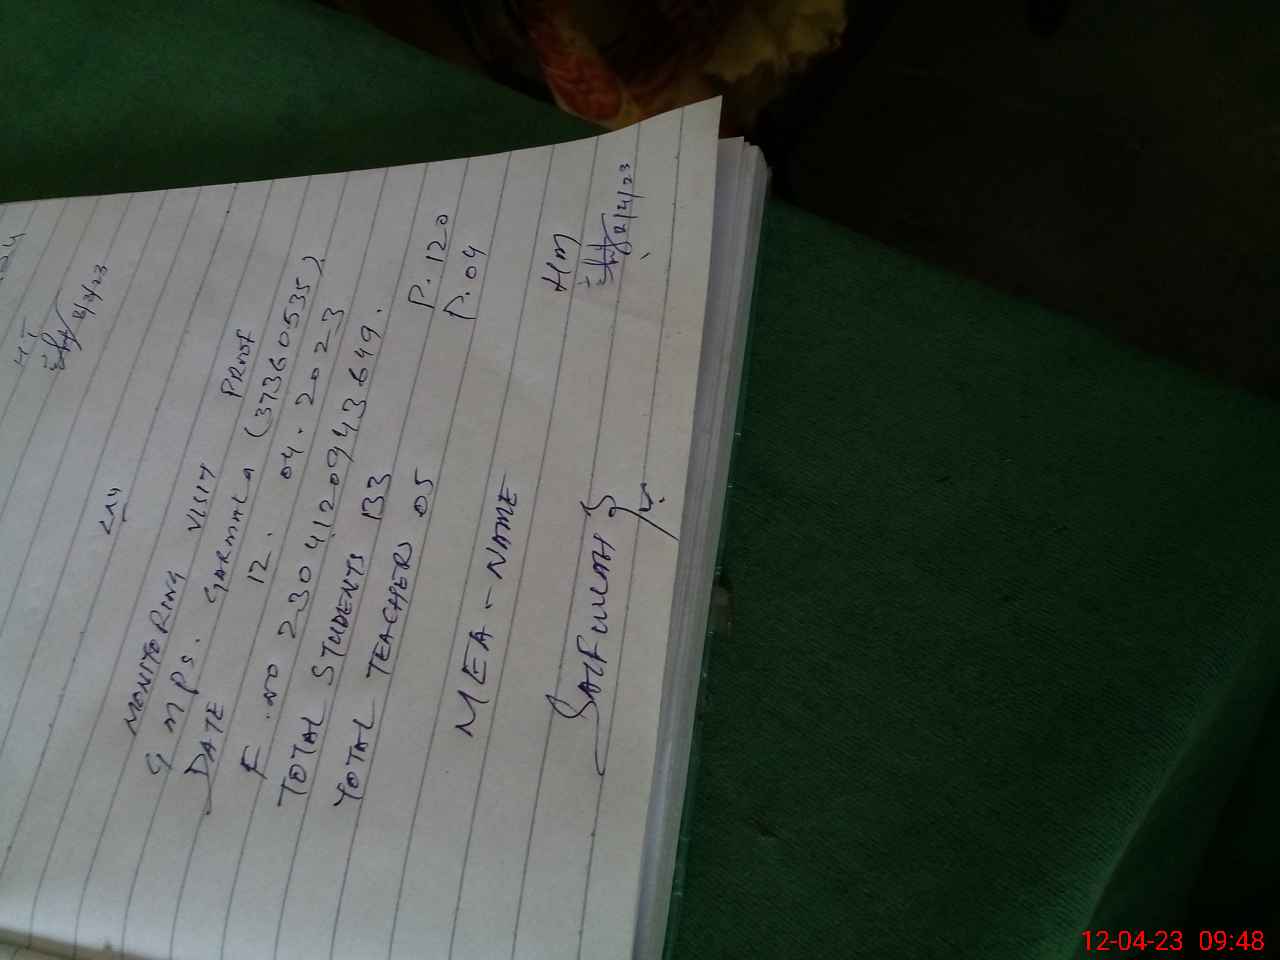 MONITORING VISIT PROOF
GMPS. GARMALA (37360535)
DATE 12. 04. 2023
F.NO 230412094364​9.
TOTAL STUDENTS 133 P. 120
TOTAL TEACHERS 05 P. 04
MEA - NAME HM
SAIFULLAH
12-04-23 09:48